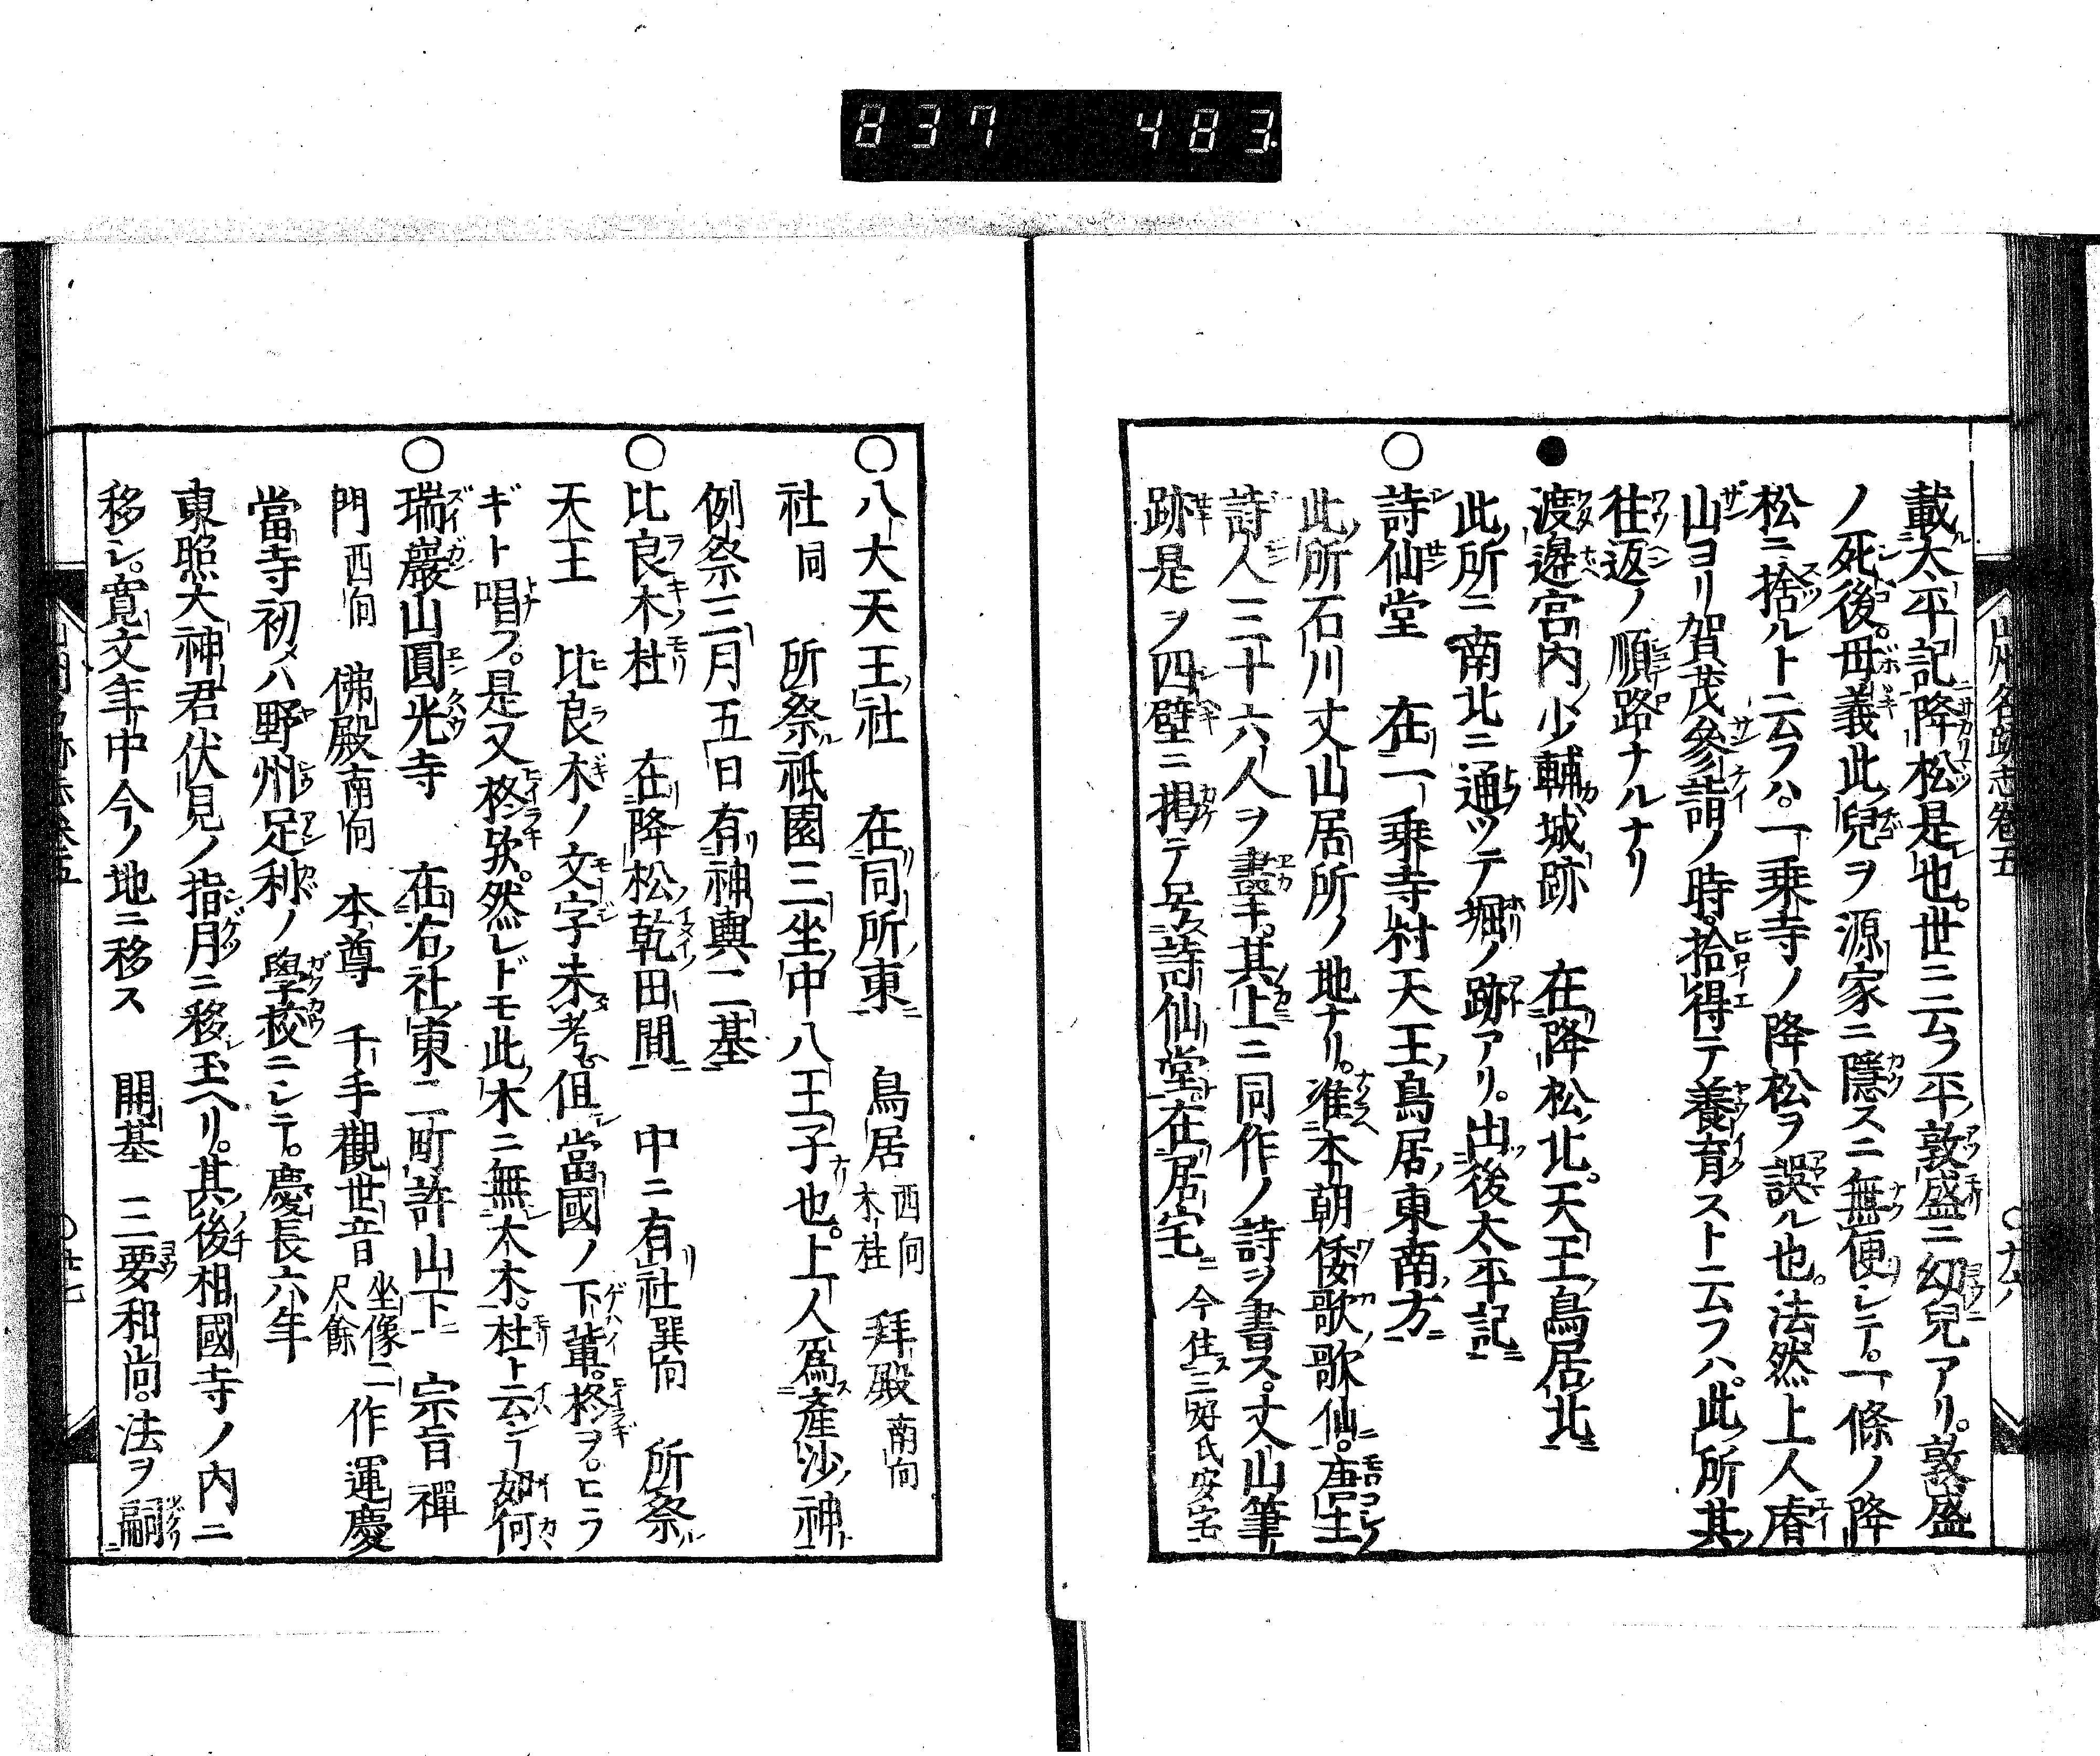 837 483
載太平記降松是也。世ニ云フ平敦盛ニ幼兒アリ。敦盛
ノ死後。母義此兒ヲ源家ニ隱スニ無便シテ。一條ノ降
松ニ捨ルト云フハ。一乗寺ノ降松ヲ誤ル也。法然上人
山ヨリ賀茂參詣ノ時。拾得テ養育スト云フハ。此所其
往返ノ順路ナルナリ
●渡邉宮内少輔城跡 在降松北。天王鳥居北
此所ニ南北ニ通ツテ堀ノ跡アリ。出後太平記
○詩仙堂 在一乗寺村天王鳥居東南方
此所石川丈山居所ノ地ナリ。准本朝倭歌歌仙。唐土
詩人三十六人ヲ畫キ。其上ニ同作ノ詩ヲ書ス。丈山筆
跡是ヲ四壁ニ掲テ号詩仙堂在居宅 今住三好氏安宅
○八大天王社 在同所東 鳥居 西向 木柱 拜殿 南向
社 同 所祭祇園三坐中八王子也。上人爲產沙神
例祭三月五日有神輿二基
○比良木杜 在降松乾田間 中ニ有社巽向 所祭
天王 比良木ノ文字未考。但當國ノ下輩。柊ヲ。ヒラ
ギト唱フ。是又柊歟。然レドモ此木ニ無大木。杜ト云如何
○瑞巖山圓光寺 在右社東二町許山下 宗旨禪
門 西向 佛殿 南向 本尊 千手觀世音 坐像二尺餘 作運慶
當寺初メハ野州足利ノ學校ニシテ。慶長六年
東照大神君伏見ノ指月ニ移シ玉ヘリ。其後相國寺ノ内ニ
移シ。寛文年中今ノ地ニ移ス 開基 三要和尚。法ヲ嗣